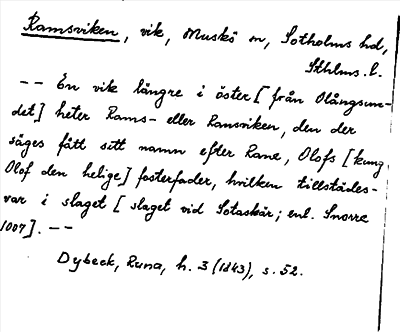 Ramsviken, vik, Muskö sn, Sotholms hd,
Sthlms. l.
-- En vik längre i öster [från Olångsun-
det] heter Rams- eller Ransviken, den der
säges fått sitt namn efter Rane, Olofs [kung
Olof den helige] fosterfader, hvilken tillstädes-
var i slaget [slaget vid Sotaskär; enl. Snorre
1007]. --
Dybeck, Runa, h. 3 (1843), s. 52.